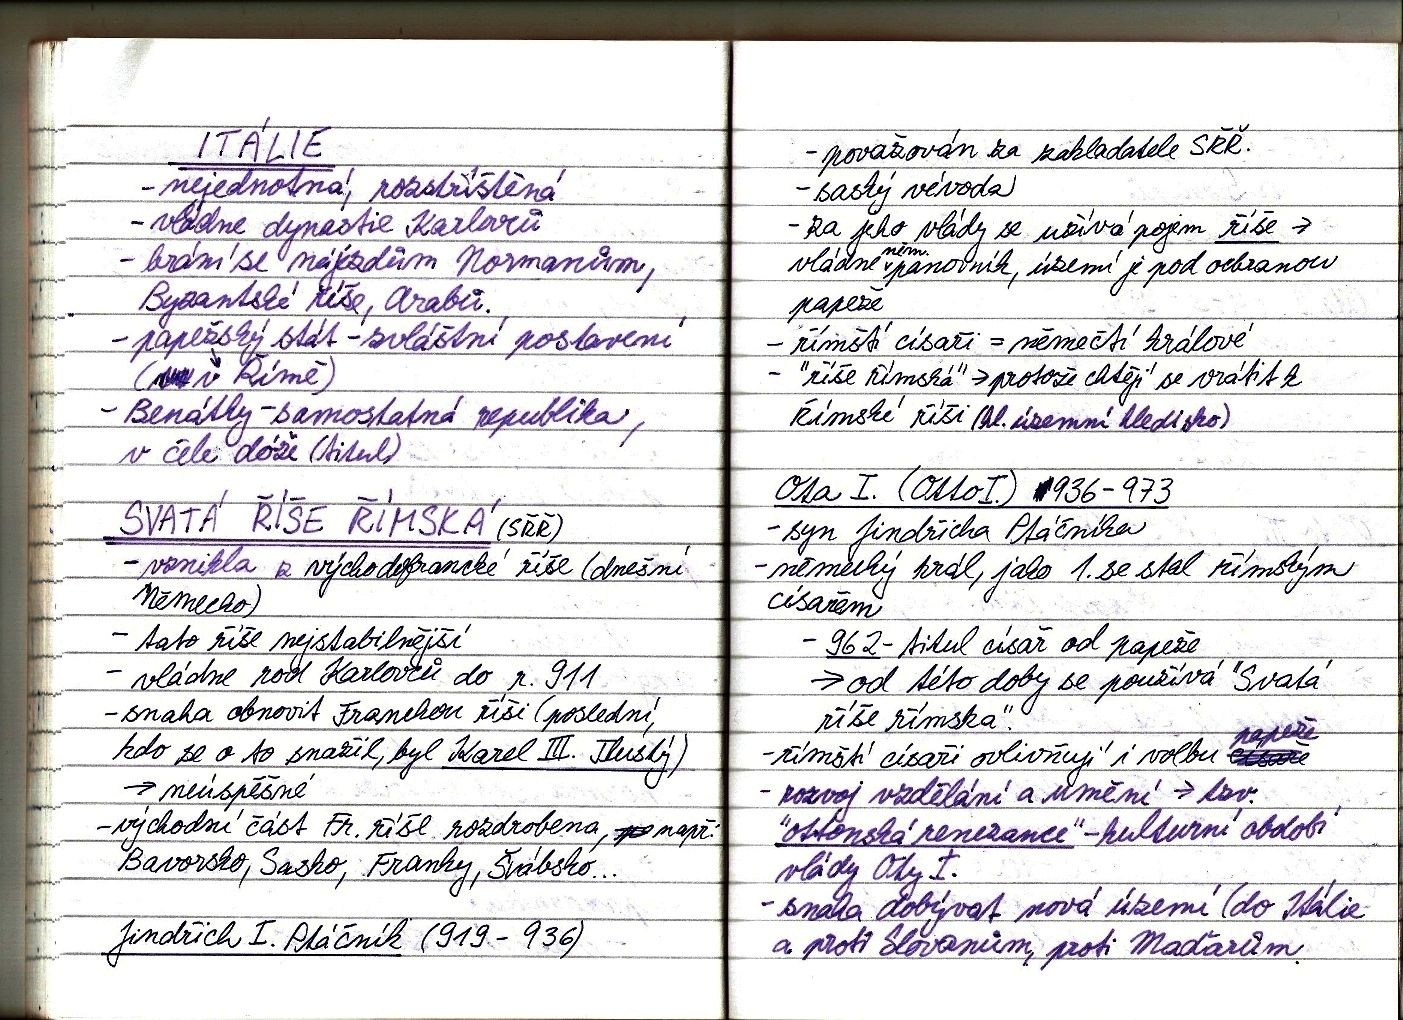 ITÁLIE
- nejednotná, roztříštěná
- vládne dynastie Karlovců
- brání se nájezdům Normanům,
Byzantské říše, Arabů.
- papežský stát - zvláštní postavení
(v Římě)
- Benátky - samostatná republika,
v čele dóže (titul)
SVATÁ ŘÍŠE ŘÍMSKÁ (SŘŘ)
- vznikla z východofrancké říše (dnešní
Německo)
- tato říše nejstabilnější
- vládne rod Karlovců do r. 911
- snaha obnovit Franckou říši (poslední,
kdo se o to snažil, byl Karel III. Tlustý)
→ neúspěšné
- východní část Fr. říše rozdrobena, např:
Bavorsko, Sasko, Franky, Švábsko...
Jindřich I. Ptáčník (919 - 936)
- považován za zakladatele SŘŘ.
- saský vévoda
- za jeho vlády se užívá pojem říše →
vládne něm. panovník, území je pod ochranou
papeže
- římští císaři = němečtí králové
- "říše římská" → protože chtějí se vrátit k
Římské říši (hl. územní hledisko)
Ota I. (Otto I.) 936 - 973
- syn Jindřicha Ptáčníka
- německý král, jako 1. se stal římským
císařem
- 962 - titul císař od papeže
→ od této doby se používá "Svatá
říše římska".
- římští císaři ovlivňují i volbu papeže
- rozvoj vzdělání a umění → tzv.
"ottonská renezance" - kulturní období
vlády Oty I.
- snaha dobývat nová území (do Itálie
a proti Slovanům, proti Maďarům.